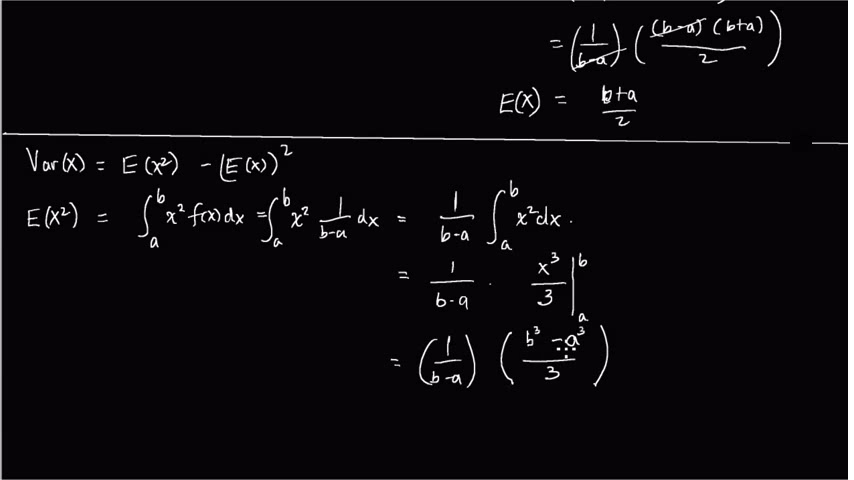 = (1/(b-a)) ((b-a)(b+a)/2)
E(X) = (b+a)/2
Var(X) = E(X²) - (E(X))²
E(X²) = ∫_a^b x² f(x)dx = ∫_a^b x² 1/(b-a) dx = 1/(b-a) ∫_a^b x² dx.
= 1/(b-a) · x³/3 |_a^b
= (1/(b-a)) ((b³ - a³)/3)